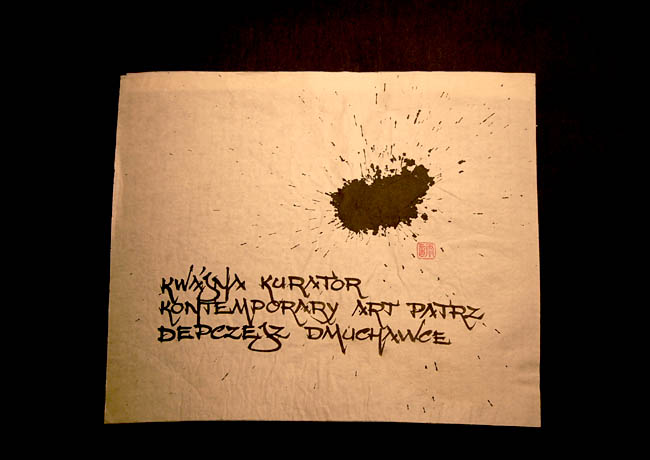 KWAŚNA KURATOR
KONTEMPORARY ART PATRZ
DEPCZESZ DMUCHAWCE